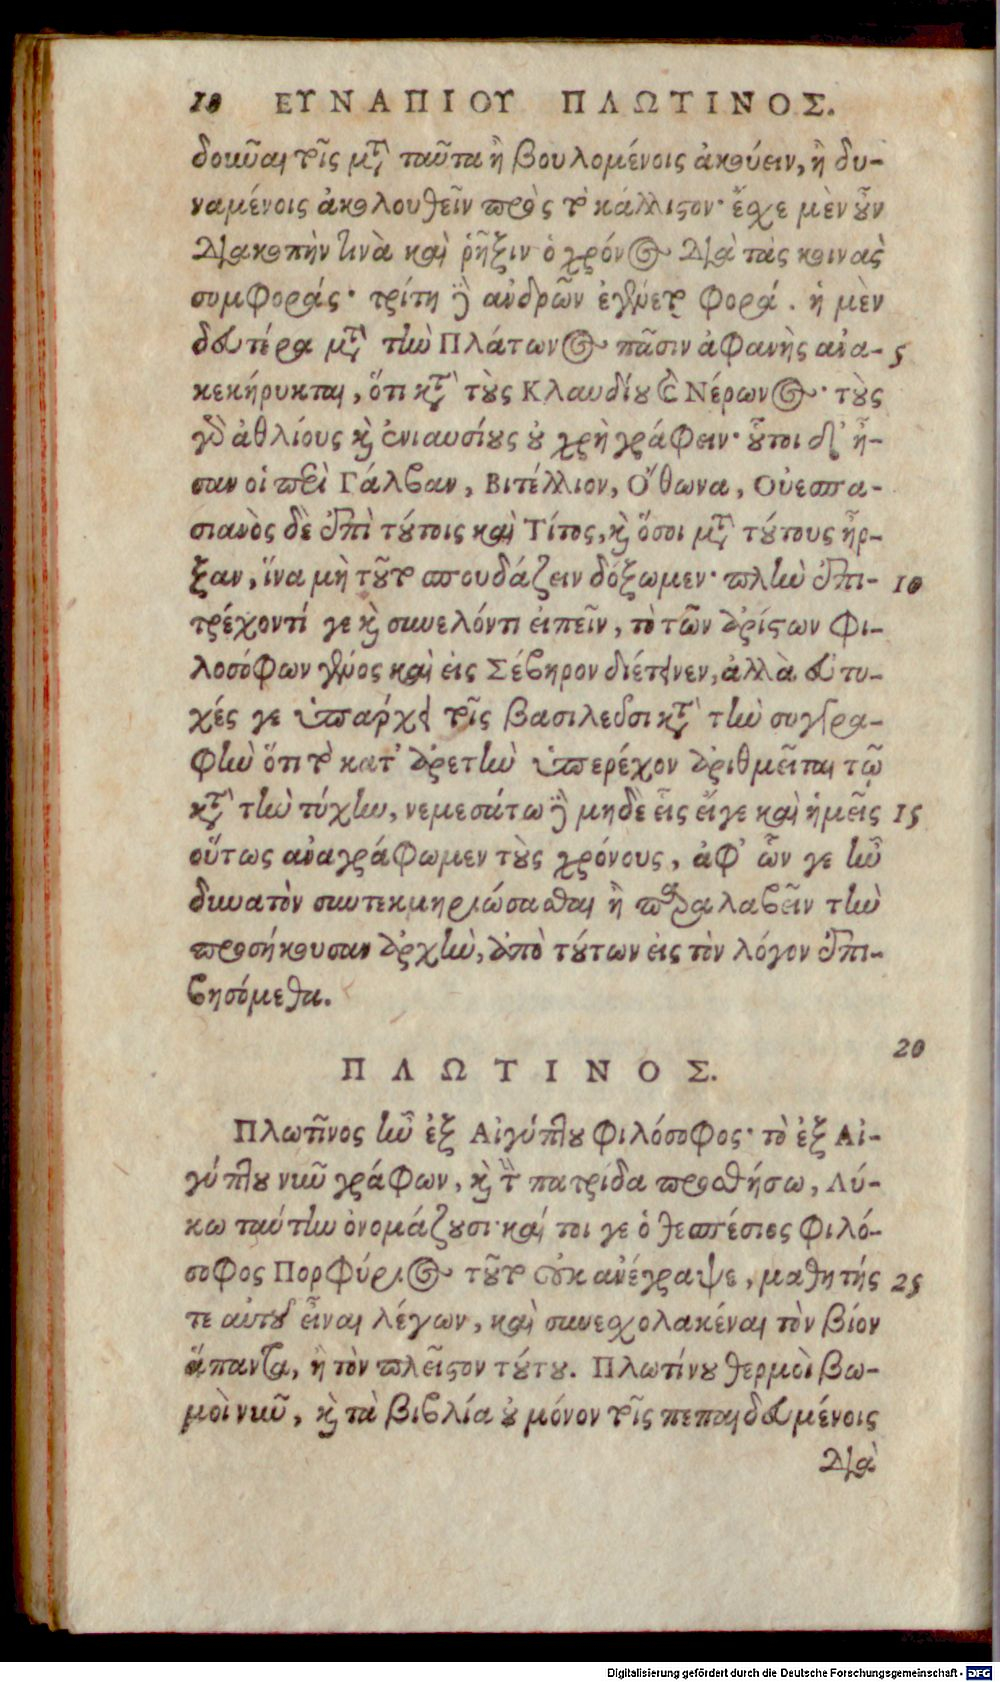 10 ΕΥΝΑΠΙΟΥ ΠΛΩΤΙΝΟΣ.
δοκοῦσαι τοῖς μετὰ ταῦτα ἢ βουλομένοις ἀκούειν, ἢ δυ-
ναμένοις ἀκολουθεῖν πρὸς τὸ κάλλιστον· ἔσχε μὲν οὖν
διακοπήν τινὰ καὶ ῥῆξιν ὁ χρόνος διὰ τὰς κοινὰς
συμφοράς· τρίτη δὲ ἀνδρῶν ἐγένετο φορά. ἡ μὲν
δευτέρα μετὰ τὴν Πλάτωνος πᾶσιν ἀφανὴς ἀνα- 5
κεκήρυκται, ὅτι κατὰ τοὺς Κλαυδίου καὶ Νέρωνος· τοὺς
γὰρ ἀθλίους καὶ ἐνιαυσίους οὐ χρὴ γράφειν· οὗτοι δ' ἦ-
σαν οἱ περὶ Γάλβαν, Βιτέλλιον, Ὄθωνα, Οὐεσπα-
σιανὸς δὲ ἐπὶ τούτοις καὶ Τίτος, καὶ ὅσοι μετὰ τούτους ἦρ-
ξαν, ἵνα μὴ τοῦτο σπουδάζειν δόξωμεν· πλὴν ἐπι- 10
τρέχοντί γε καὶ συνελόντι εἰπεῖν, τὸ τῶν ἀρίστων φι-
λοσόφων γένος καὶ εἰς Σέβηρον διέτεινεν, ἀλλὰ εὐτυ-
χές γε ὑπάρχει τοῖς βασιλεῦσι κατὰ τὴν συγγρα-
φὴν ὅτι τὸ κατ' ἀρετὴν ὑπερέχον ἀριθμεῖται τῷ
κατὰ τὴν τύχην, νεμεσάτω δὲ μηδὲ εἷς εἴγε καὶ ἡμεῖς 15
οὕτως ἀναγράφωμεν τοὺς χρόνους, ἀφ' ὧν γε ἦν
δυνατὸν συντεκμηριώσασθαι ἢ παραλαβεῖν τὴν
προσήκουσαν ἀρχὴν, ἀπὸ τούτων εἰς τὸν λόγον ἐπι-
βησόμεθα.
20
ΠΛΩΤΙΝΟΣ.
Πλωτῖνος ἦν ἐξ Αἰγύπτου φιλόσοφος· τὸ ἐξ Αἰ-
γύπτου νῦν γράφων, καὶ τὴν πατρίδα προσθήσω, Λύ-
κω ταύτην ὀνομάζουσι· καί τοι γε ὁ θεσπέσιος φιλό-
σοφος Πορφύριος τοῦτο οὐκ ἀνέγραψε, μαθητής 25
τε αὐτοῦ εἶναι λέγων, καὶ συνεσχολακέναι τὸν βίον
ἅπαντα, ἢ τὸν πλεῖστον τούτου. Πλωτίνου θερμοὶ βω-
μοὶ νῦν, καὶ τὰ βιβλία οὐ μόνον τοῖς πεπαιδευμένοις
διὰ
Digitalisierung gefördert durch die Deutsche Forschungsgemeinschaft - DFG